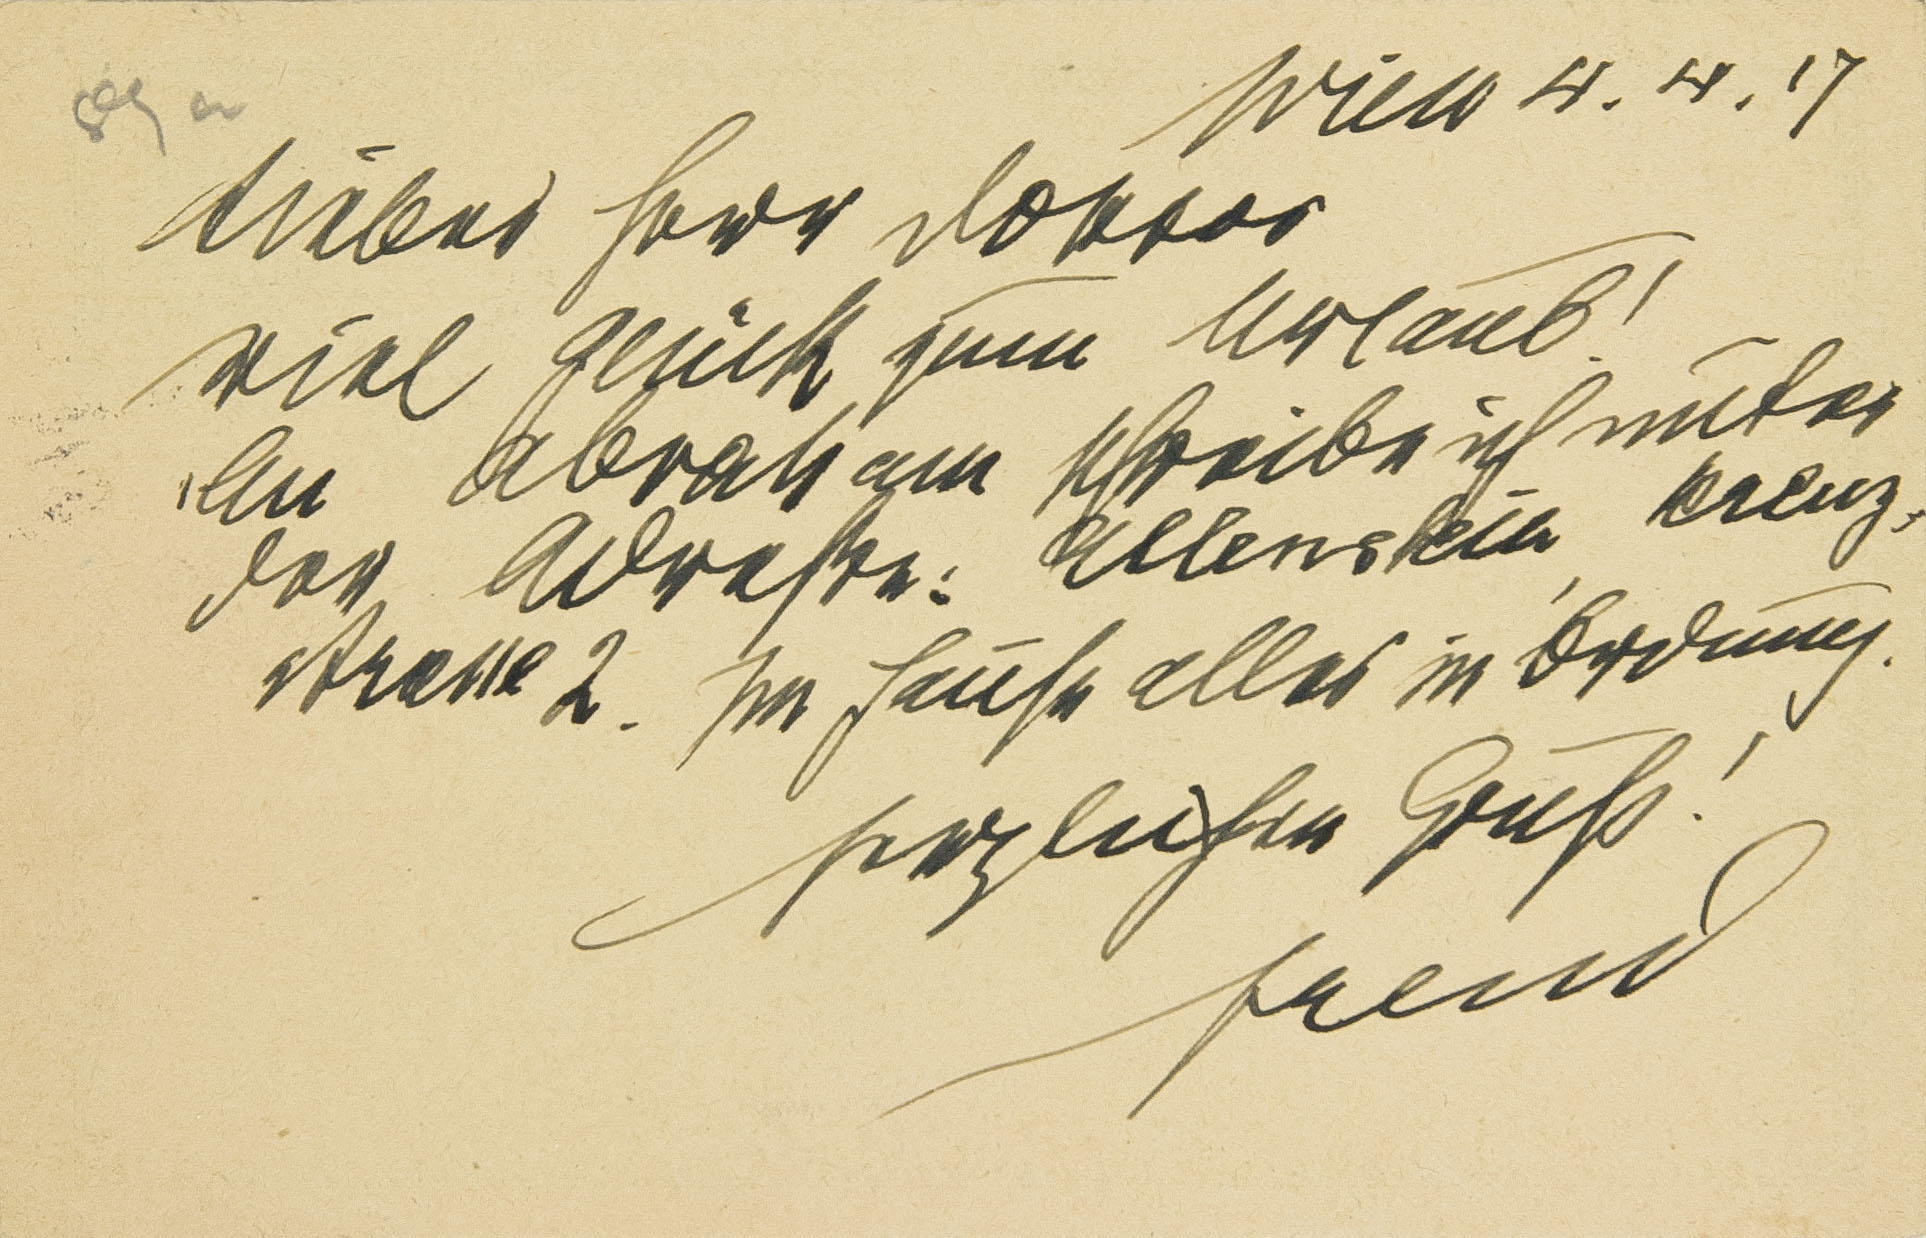 Wien 4. 4. 17
Lieber Herr Doktor
Viel Glück zum Urlaub!
An Abraham schreibe ich unter
der Adresse: Allenstein, Kreuz-
strasse 2. Im Hause alles in Ordnung.
Herzlichen Gruß!
Freud